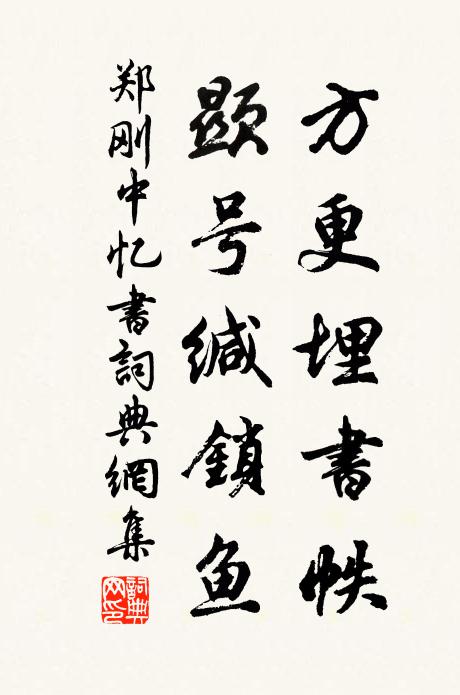 方更埋書帙
顕号緘鎖鱼
郑刚中忆書詞典網集
詞典网印